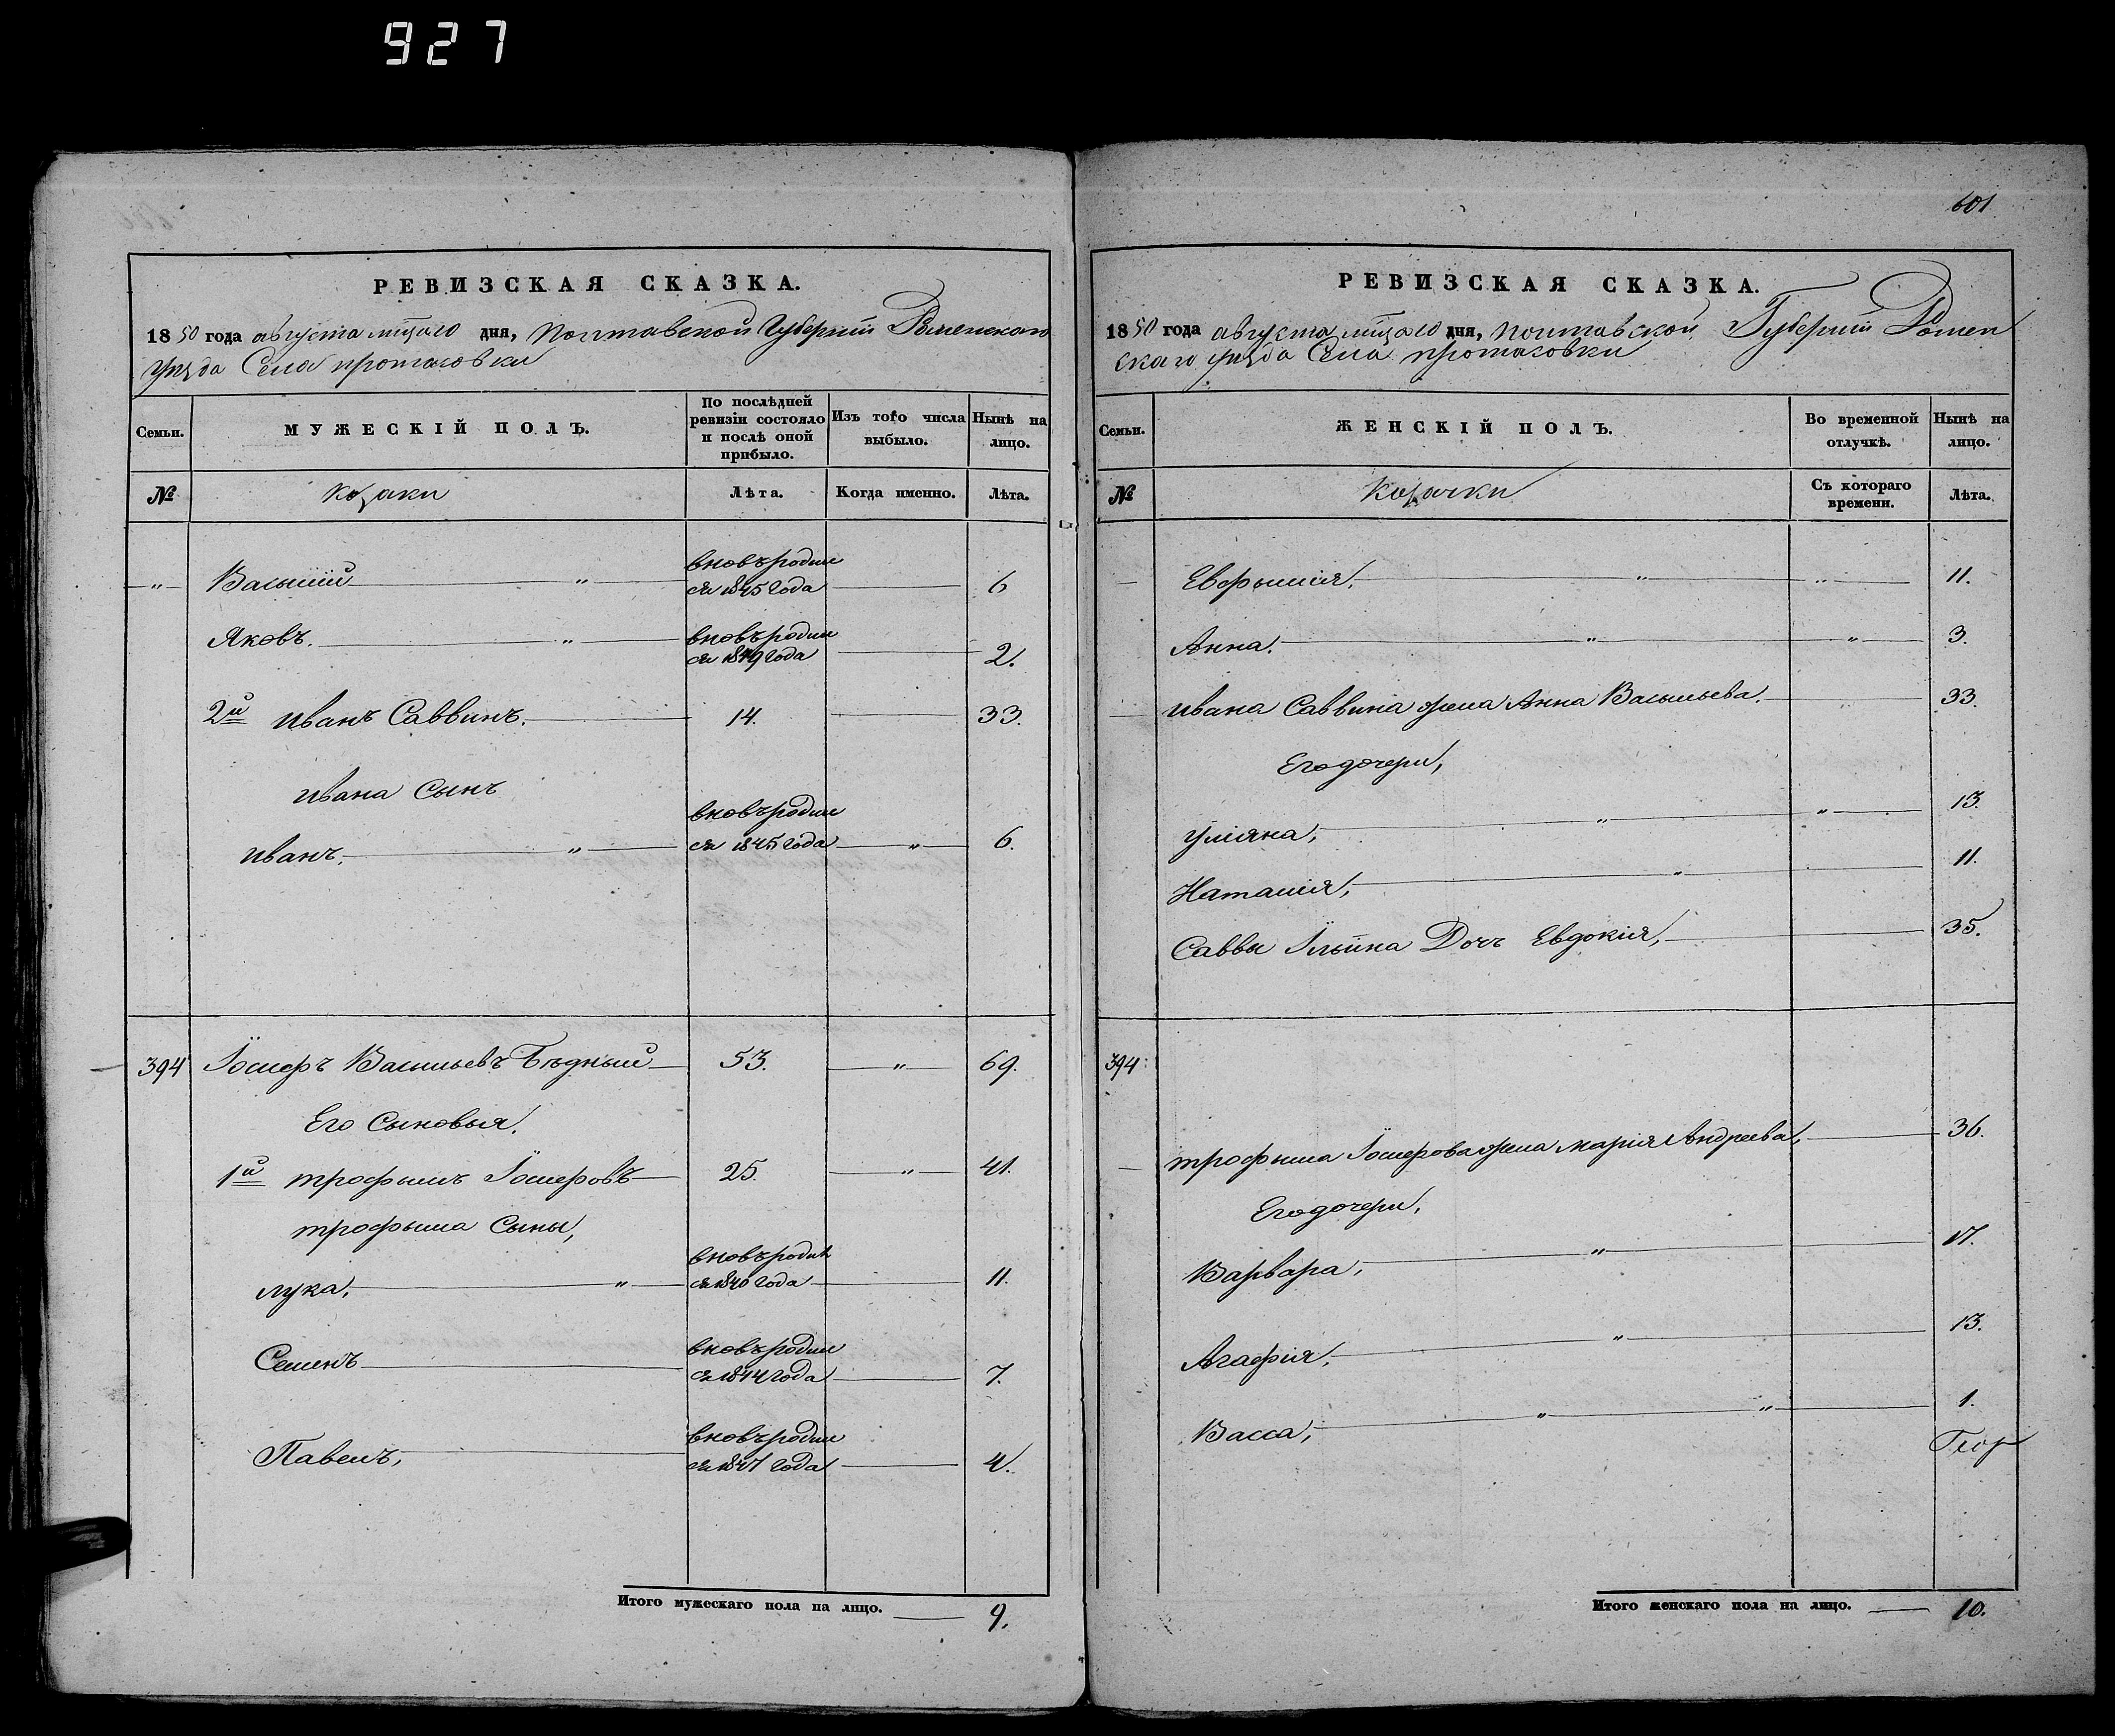 927
РЕВИЗСКАЯ СКАЗКА.
1850 года августа мѣсяца дня, Полтавской Губерніи Роменскаго
уѣзда Села протасовки
Семьи.
МУЖЕСКІЙ ПОЛЪ.
По послѣдней
ревизіи состояло
и послѣ оной
прибыло.
Изъ того числа
выбыло.
Нынѣ на
лицо.
№
козаки
Лѣта.
Когда именно.
Лѣта.
„ Василій „ вновьродил
ся 1845 года 6
Яковъ. „ вновьродил
ся 1849 года 2.
2й иванъ Саввинъ. 14. 33.
ивана Сынъ
иванъ. „ вновьродил
ся 1845 года „ 6.
394 Іосифъ Васильевъ Бѣдный 53. „ 69.
Его Сыновья.
1й трофымъ Іосифовъ 25. „ 41.
трофыма Сыны,
лука. „ вновьродил
ся 1840 года 11.
Семенъ вновьродил
ся 1844 года 7.
Павелъ, вновьродил
ся 1847 года 4.
Итого мужескаго пола на лицо. 9.
601
РЕВИЗСКАЯ СКАЗКА.
1850 года августа мѣсяца дня, полтавской Губерніи Ромен
скаго уѣзда Села протасовки
Семьи.
ЖЕНСКІЙ ПОЛЪ.
Во временной
отлучкѣ.
Нынѣ на
лицо.
№
козачки
Съ котораго
времени.
Лѣта.
Евфымія. „ „ 11.
Анна. „ „ 3.
ивана Саввина жена Анна Васыльева. 33.
Его дочери,
уліяна, „ „ 13.
Наталія, „ 11.
Саввы Ільина Дочь Евдокія, 35.
394
трофыма Іосифова жена марія Андреева, 36.
Его дочери,
Варвара, „ 17.
Агафія, „ 13.
Васса, „ „ 1.
Итого женскаго пола на лицо. 10.